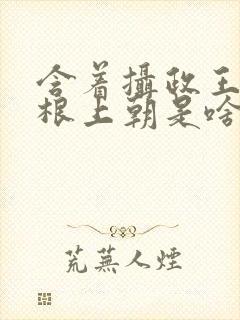 含着攝政王
根上朝是啥
荒蕪人煙